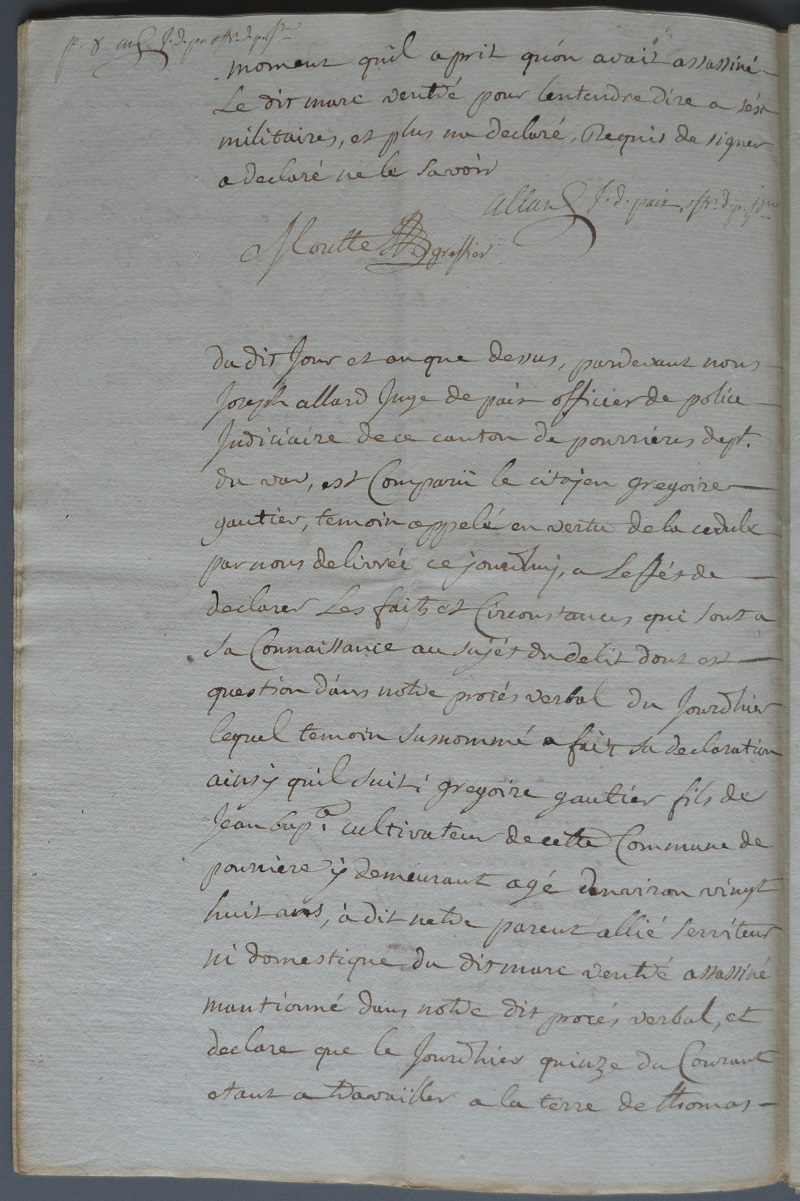 moment qu'il aprit qu'on avait assassiné
Le dit marc ventré pour l'entendre dire a sés
militaires, et plus na declaré, Requis de signer
a declaré ne le savoir
allard J. d. paix, offr. d. p. jre
Moutte greffier
du dit Jour et an que dessus, pardevant nous
Joseph allard Juge de paix officier de police
Judiciaire de ce canton de pourrieres dept.
du var, est Comparû le citoyen gregoire
gautier, temoin appelé en vertu de la cedule
par nous delivrée ce jourdhuj, a Leffét de
declarer Les faits et Circonstances qui sont a
sa Connaissance au sujét du delit dont est
question dans notre procés verbal du Jourdhier
lequel temoin susnommé a fait sa declaration
ainsy quil suit; gregoire gautier fils de
Jean bapte. cultivateur de cette Commune de
pourriere y demeurant agé denviron vingt
huit ans, à dit netre parent allié serviteur
ni domestique du dit marc ventré assassiné
mantionné dans notre dit procés verbal, et
declare que le Jourdhier quinze du Courant
etant a travaïller a la terre de thomas